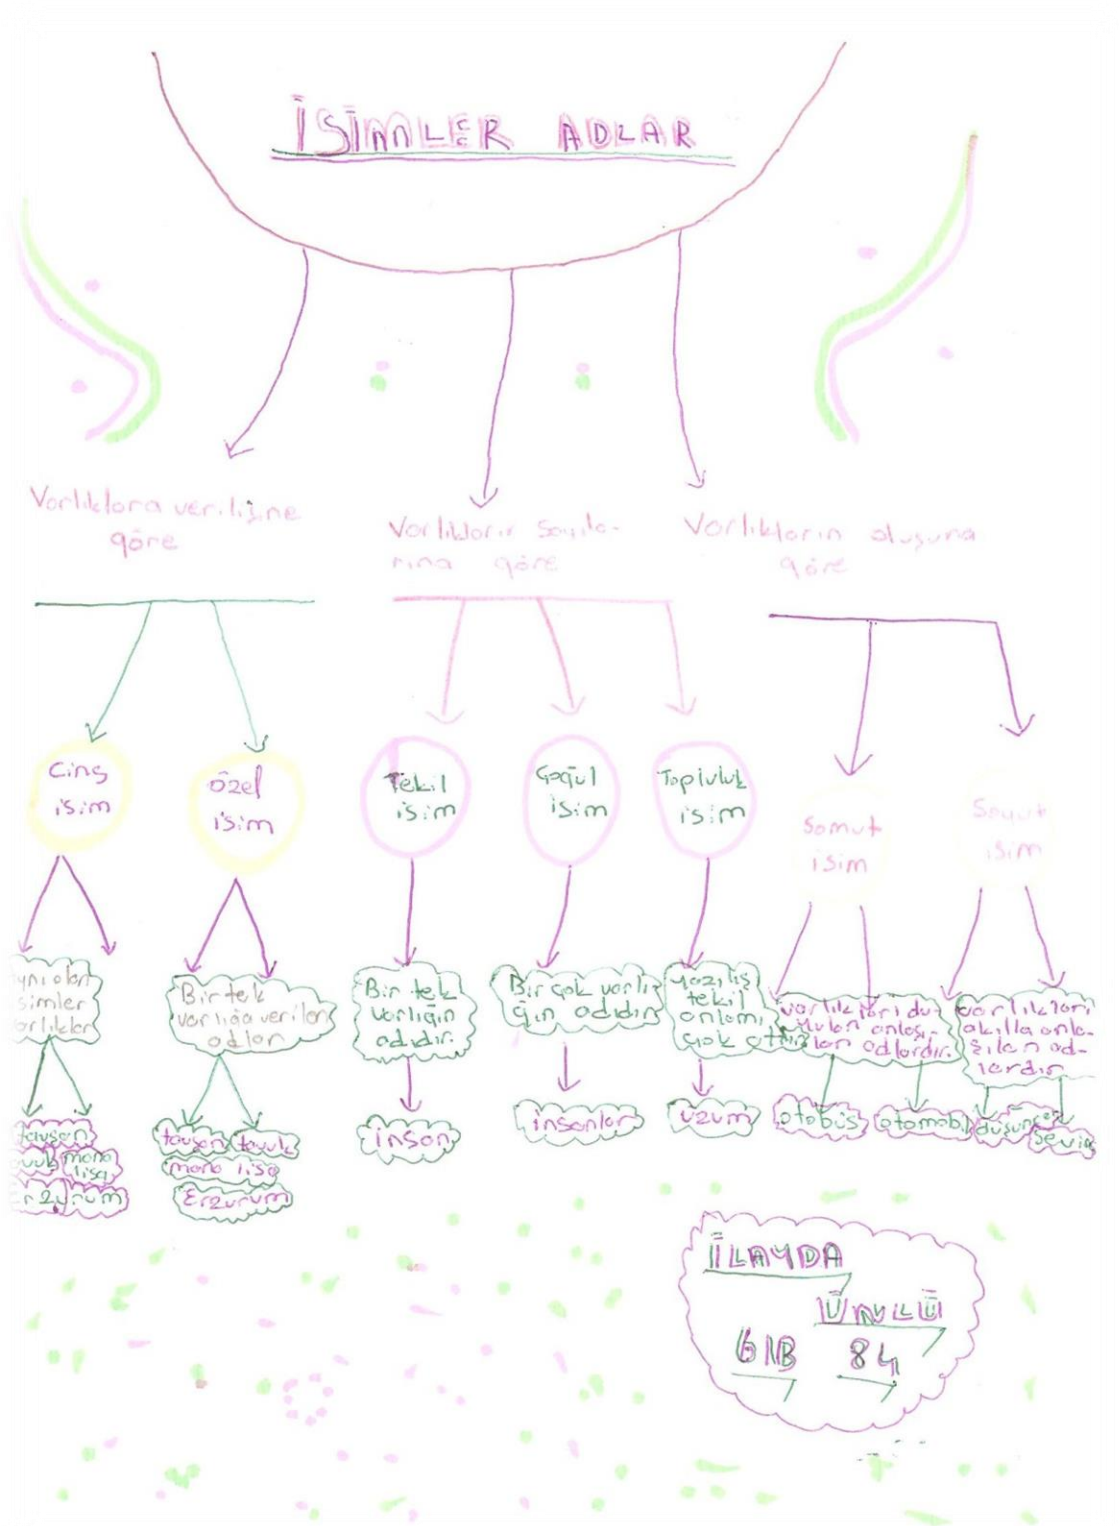 İSİMLER ADLAR
Varlıklara verilişine
göre
Varlıkların sayıla-
rına göre
Varlıkların oluşuna
göre
Cins
isim
Özel
isim
Tekil
isim
Çoğul
isim
Topluluk
isim
Somut
isim
Soyut
isim
ynı olan
simler
arlıklar
Bir tek
varlığa verilen
adlar
Bir tek
varlığın
adıdır.
Bir çok varlı-
ğın adıdır
yazılış
tekil
anlamı
çok
varlıkları du-
yulan anlaşı-
lan adlardır.
varlıkları
akılla anla-
şılan ad-
lardır
tavşan
avuk mona
lisa
Erzurum
tavşan tavuk
mona lisa
Erzurum
insan
insanlar
üzüm
otobüs
otomobil
düşünce
sevgi
İLAYDA
ÜNLÜ
6/B 84